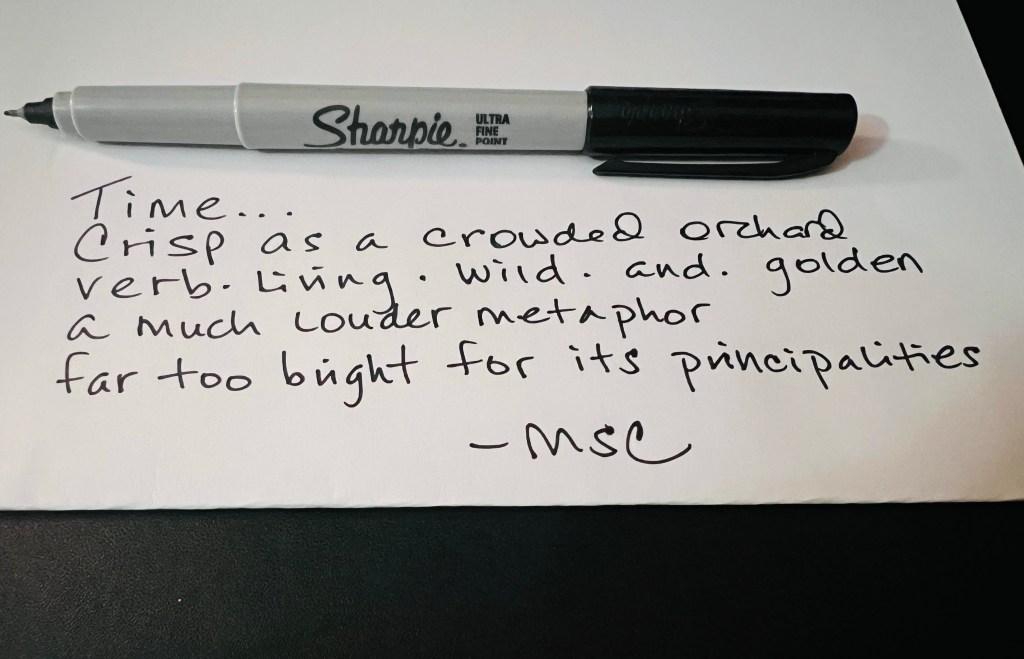 Sharpie.
ULTRA
FINE
POINT
Time...
Crisp as a crowded orchard
verb. Living. wild. and. golden
a much louder metaphor
far too bright for its principalities
- MSC